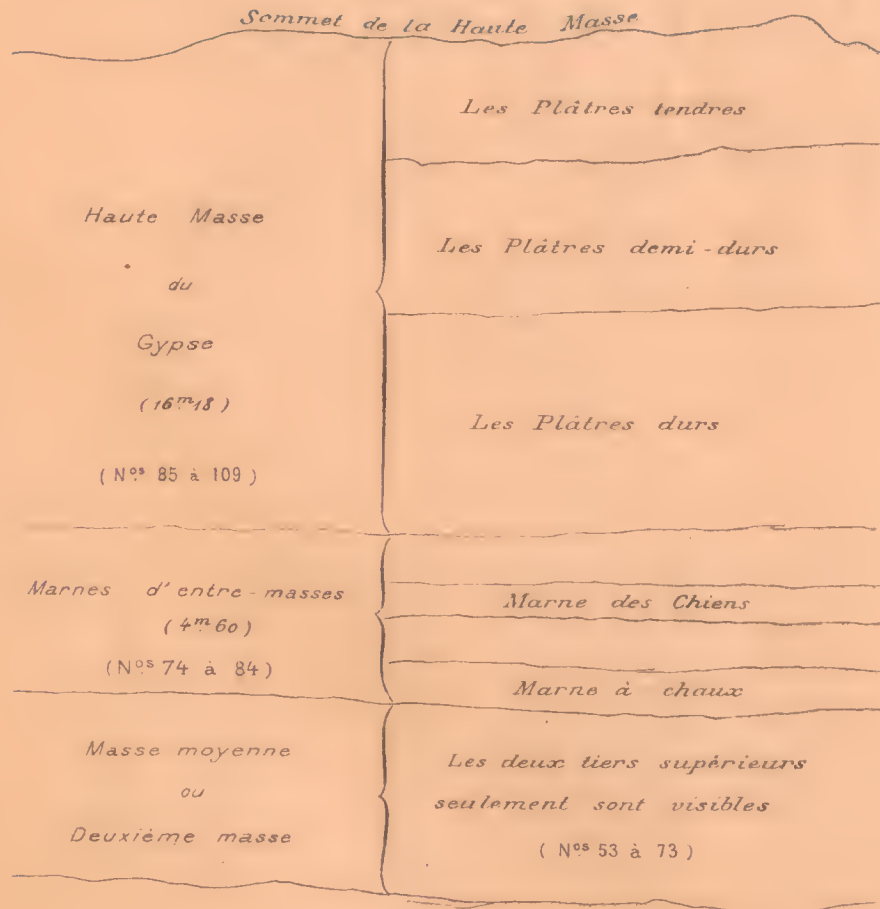 Sommet de la Haute Masse
Haute Masse
du
Gypse
(16m18)
(Nos 85 à 109)
Les Plâtres tendres
Les Plâtres demi-durs
Les Plâtres durs
Marnes d'entre-masses
(4m60)
(Nos 74 à 84)
Marne des Chiens
Marne à chaux
Masse moyenne
ou
Deuxième masse
Les deux tiers supérieurs
seulement sont visibles
(Nos 53 à 73)